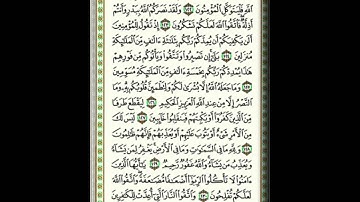 ٱللَّهِ فَلْيَتَوَكَّلِ ٱلْمُؤْمِنُونَ ١٢٢ وَلَقَدْ نَصَرَكُمُ ٱللَّهُ بِبَدْرٍ وَأَنتُمْ
أَذِلَّةٌ فَٱتَّقُوا۟ ٱللَّهَ لَعَلَّكُمْ تَشْكُرُونَ ١٢٣ إِذْ تَقُولُ لِلْمُؤْمِنِينَ
أَلَن يَكْفِيَكُمْ أَن يُمِدَّكُمْ رَبُّكُم بِثَلَٰثَةِ ءَالَٰفٍ مِّنَ ٱلْمَلَٰٓئِكَةِ
مُنزَلِينَ ١٢٤ بَلَىٰٓ إِن تَصْبِرُوا۟ وَتَتَّقُوا۟ وَيَأْتُوكُم مِّن فَوْرِهِمْ
هَٰذَا يُمْدِدْكُمْ رَبُّكُم بِخَمْسَةِ ءَالَٰفٍ مِّنَ ٱلْمَلَٰٓئِكَةِ مُسَوِّمِينَ
١٢٥ وَمَا جَعَلَهُ ٱللَّهُ إِلَّا بُشْرَىٰ لَكُمْ وَلِتَطْمَئِنَّ قُلُوبُكُم بِهِۦ وَمَا
ٱلنَّصْرُ إِلَّا مِنْ عِندِ ٱللَّهِ ٱلْعَزِيزِ ٱلْحَكِيمِ ١٢٦ لِيَقْطَعَ طَرَفًا
مِّنَ ٱلَّذِينَ كَفَرُوٓا۟ أَوْ يَكْبِتَهُمْ فَيَنقَلِبُوا۟ خَآئِبِينَ ١٢٧ لَيْسَ لَكَ
مِنَ ٱلْأَمْرِ شَىْءٌ أَوْ يَتُوبَ عَلَيْهِمْ أَوْ يُعَذِّبَهُمْ فَإِنَّهُمْ ظَٰلِمُونَ
١٢٨ وَلِلَّهِ مَا فِى ٱلسَّمَٰوَٰتِ وَمَا فِى ٱلْأَرْضِ يَغْفِرُ لِمَن يَشَآءُ
وَيُعَذِّبُ مَن يَشَآءُ وَٱللَّهُ غَفُورٌ رَّحِيمٌ ١٢٩ يَٰٓأَيُّهَا ٱلَّذِينَ
ءَامَنُوا۟ لَا تَأْكُلُوا۟ ٱلرِّبَوٰٓا۟ أَضْعَٰفًا مُّضَٰعَفَةً وَٱتَّقُوا۟ ٱللَّهَ
لَعَلَّكُمْ تُفْلِحُونَ ١٣٠ وَٱتَّقُوا۟ ٱلنَّارَ ٱلَّتِىٓ أُعِدَّتْ لِلْكَٰفِرِينَ